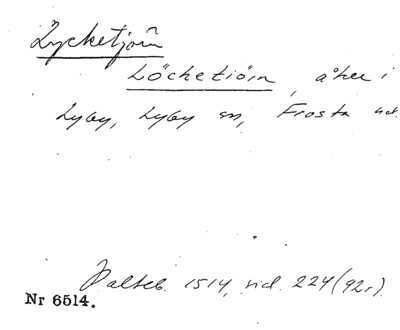 Lycketjörn
Löchetiörn, åker i
Lyby, Lyby sn, Frosta hd.
Palteb. 1514, sid. 224 (92r).
Nr 6514.